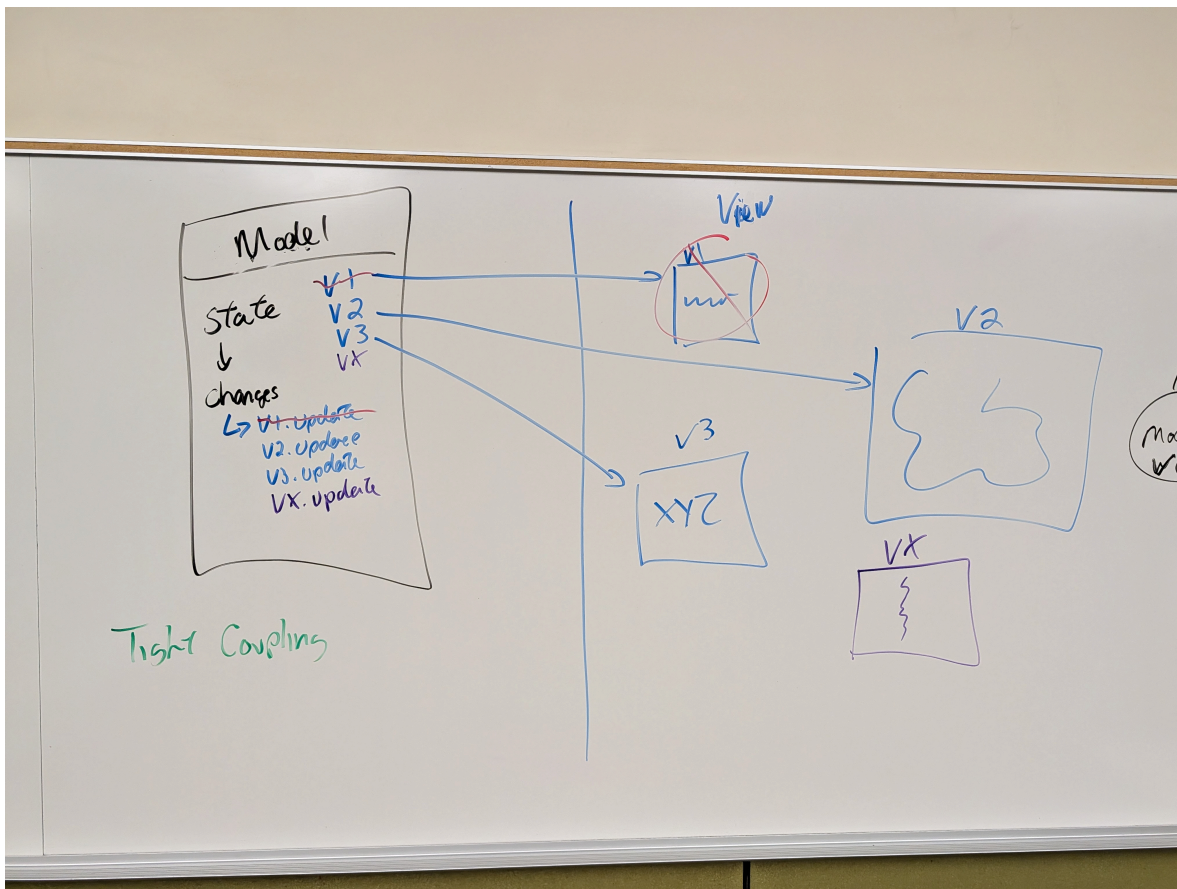 Model
State
V1
V2
V3
VX
↓
Changes
↳ V1.update
V2.update
V3.update
VX.update
Tight Coupling
View
V1
V2
V3
XYZ
VX